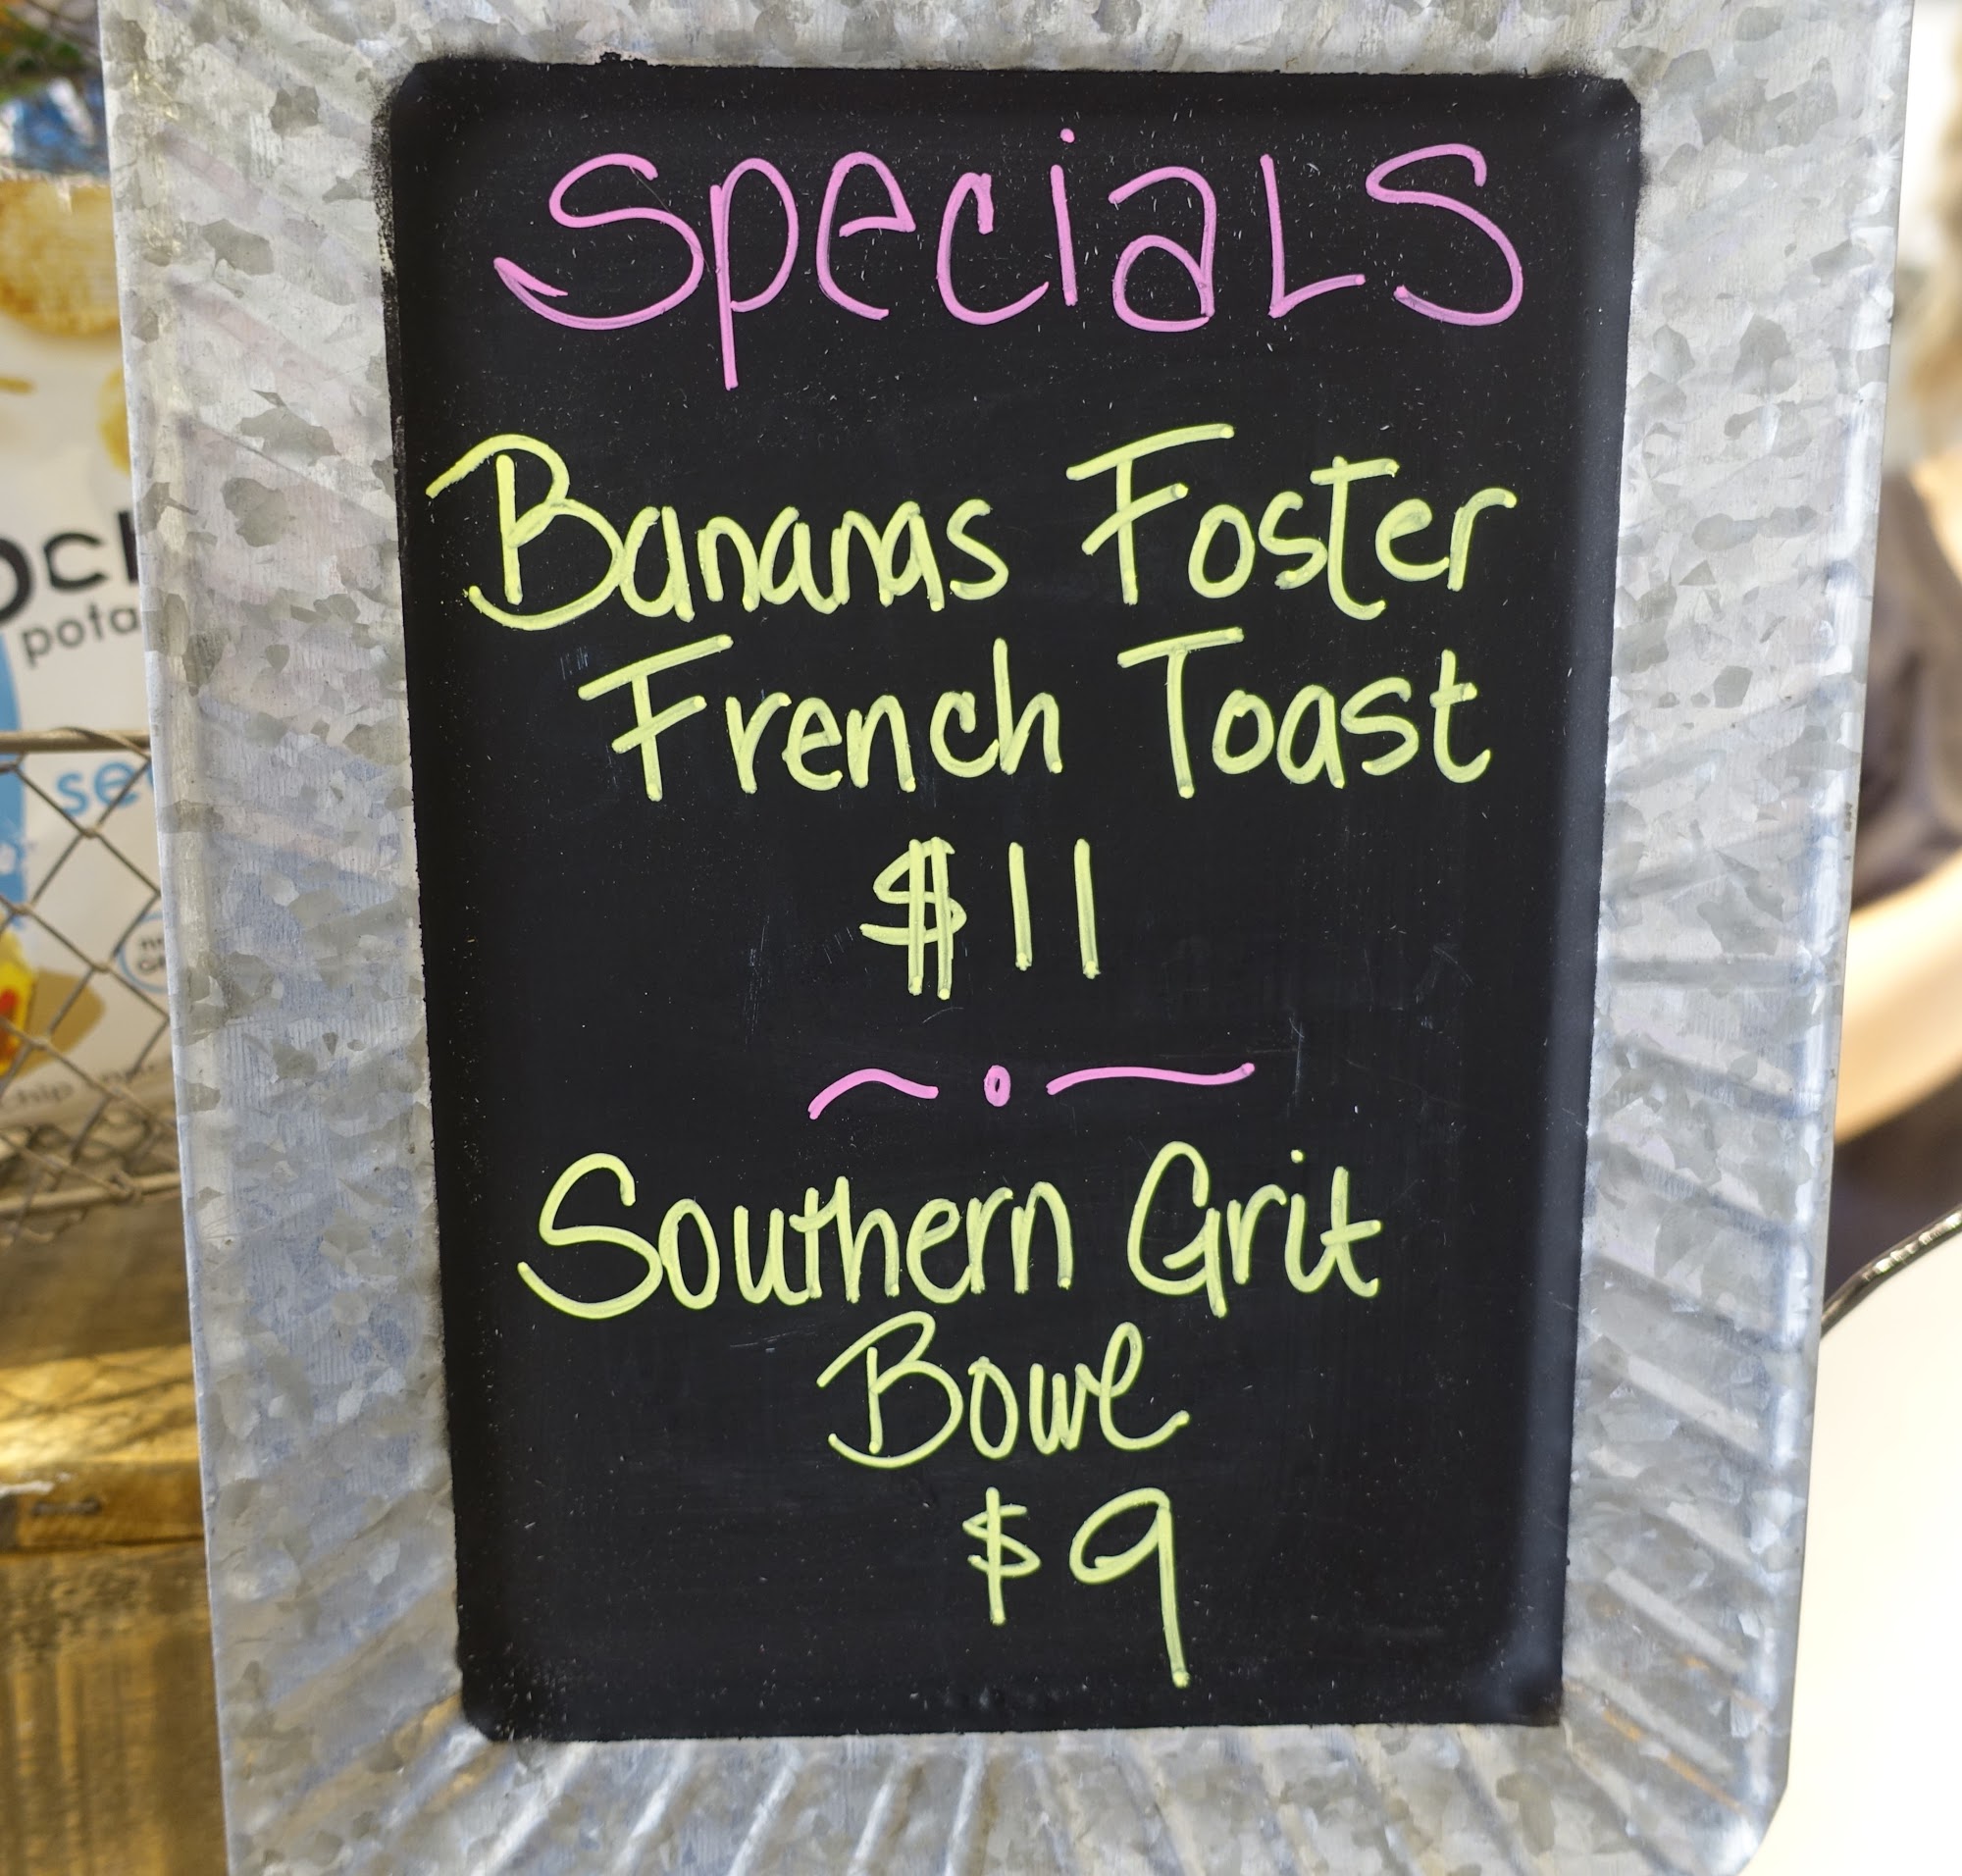 SpeciaLS
Bananas Foster
French Toast
$11
Southern Grit
Bowl
$9
pota